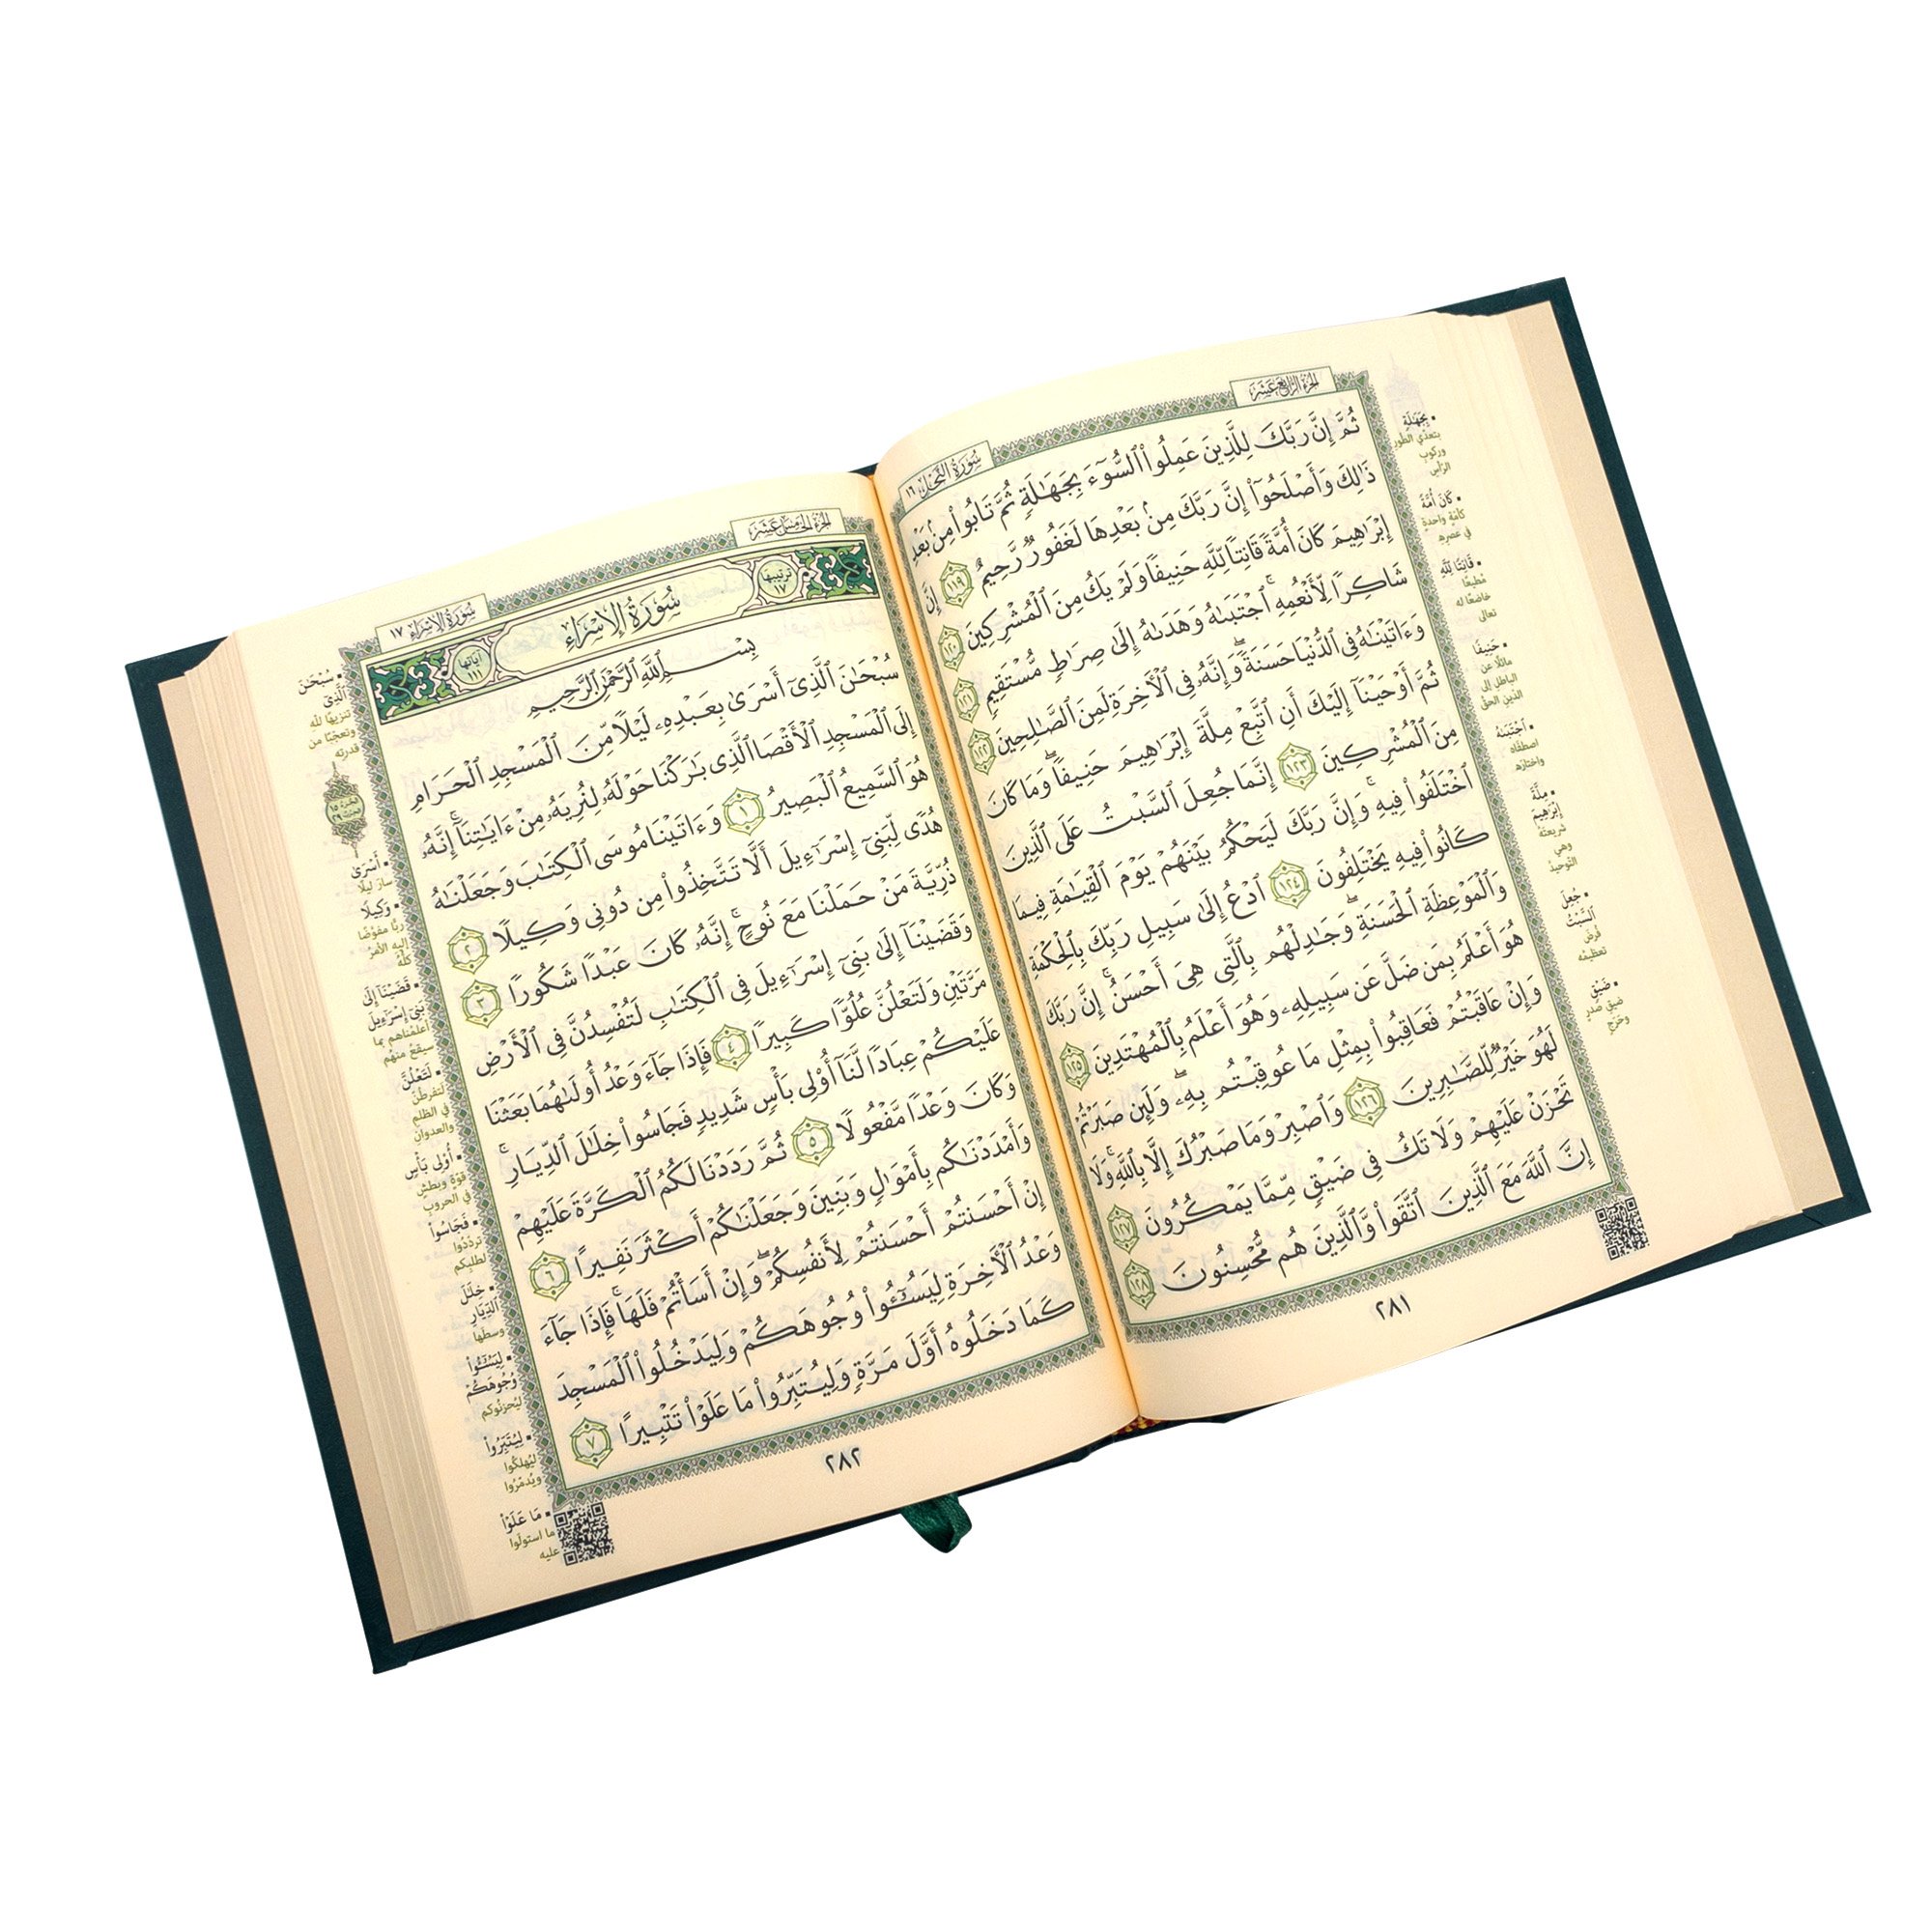 سُورَةُ النَّحْلِ ١٦
الجُزْءُ الرَّابِعَ عَشَرَ
ثُمَّ إِنَّ رَبَّكَ لِلَّذِينَ عَمِلُوا۟ ٱلسُّوٓءَ بِجَهَـٰلَةٍ ثُمَّ تَابُوا۟ مِنۢ بَعْدِ
ذَٰلِكَ وَأَصْلَحُوٓا۟ إِنَّ رَبَّكَ مِنۢ بَعْدِهَا لَغَفُورٌ رَّحِيمٌ ١١٩ إِنَّ
إِبْرَٰهِيمَ كَانَ أُمَّةً قَانِتًا لِّلَّهِ حَنِيفًا وَلَمْ يَكُ مِنَ ٱلْمُشْرِكِينَ ١٢٠
شَاكِرًا لِّأَنْعُمِهِ ۚ ٱجْتَبَىٰهُ وَهَدَىٰهُ إِلَىٰ صِرَٰطٍ مُّسْتَقِيمٍ ١٢١
وَءَاتَيْنَـٰهُ فِى ٱلدُّنْيَا حَسَنَةً ۖ وَإِنَّهُۥ فِى ٱلْـَٔاخِرَةِ لَمِنَ ٱلصَّـٰلِحِينَ ١٢٢
ثُمَّ أَوْحَيْنَآ إِلَيْكَ أَنِ ٱتَّبِعْ مِلَّةَ إِبْرَٰهِيمَ حَنِيفًا ۖ وَمَا كَانَ
مِنَ ٱلْمُشْرِكِينَ ١٢٣ إِنَّمَا جُعِلَ ٱلسَّبْتُ عَلَى ٱلَّذِينَ
ٱخْتَلَفُوا۟ فِيهِ ۚ وَإِنَّ رَبَّكَ لَيَحْكُمُ بَيْنَهُمْ يَوْمَ ٱلْقِيَـٰمَةِ فِيمَا
كَانُوا۟ فِيهِ يَخْتَلِفُونَ ١٢٤ ٱدْعُ إِلَىٰ سَبِيلِ رَبِّكَ بِٱلْحِكْمَةِ
وَٱلْمَوْعِظَةِ ٱلْحَسَنَةِ ۖ وَجَـٰدِلْهُم بِٱلَّتِى هِىَ أَحْسَنُ ۚ إِنَّ رَبَّكَ
هُوَ أَعْلَمُ بِمَن ضَلَّ عَن سَبِيلِهِۦ ۖ وَهُوَ أَعْلَمُ بِٱلْمُهْتَدِينَ ١٢٥
وَإِنْ عَاقَبْتُمْ فَعَاقِبُوا۟ بِمِثْلِ مَا عُوقِبْتُم بِهِۦ ۖ وَلَئِن صَبَرْتُمْ
لَهُوَ خَيْرٌ لِّلصَّـٰبِرِينَ ١٢٦ وَٱصْبِرْ وَمَا صَبْرُكَ إِلَّا بِٱللَّهِ ۚ وَلَا
تَحْزَنْ عَلَيْهِمْ وَلَا تَكُ فِى ضَيْقٍ مِّمَّا يَمْكُرُونَ ١٢٧
إِنَّ ٱللَّهَ مَعَ ٱلَّذِينَ ٱتَّقَوا۟ وَّٱلَّذِينَ هُم مُّحْسِنُونَ ١٢٨
٢٨١
بِجَهَـٰلَةٍ
بتعدّي الطور
وركوب
الرأس
كَانَ أُمَّةً
كأمّة واحدةٍ
في عصره
قَانِتًا لِّلَّهِ
مُطيعًا
خاضعًا له
تعالى
حَنِيفًا
مائلًا عن
الباطل إلى
الدين الحقّ
ٱجْتَبَىٰهُ
اصطفاه
واختاره
مِلَّةَ
إِبْرَٰهِيمَ
شريعته
وهي
التّوحيدُ
جُعِلَ
ٱلسَّبْتُ
فُرِضَ
تعظيمُه
ضَيْقٍ
ضيق صَدْرٍ
وحَرَجٍ
سُورَةُ الإِسْرَاءِ ١٧
الجُزْءُ الخَامِسَ عَشَرَ
ترتيبها ١٧
سُورَةُ الإِسْرَاءِ
آياتها ١١١
بِسْمِ ٱللَّهِ ٱلرَّحْمَـٰنِ ٱلرَّحِيمِ
سُبْحَـٰنَ ٱلَّذِىٓ أَسْرَىٰ بِعَبْدِهِۦ لَيْلًا مِّنَ ٱلْمَسْجِدِ ٱلْحَرَامِ
إِلَى ٱلْمَسْجِدِ ٱلْأَقْصَا ٱلَّذِى بَـٰرَكْنَا حَوْلَهُۥ لِنُرِيَهُۥ مِنْ ءَايَـٰتِنَآ ۚ إِنَّهُۥ
هُوَ ٱلسَّمِيعُ ٱلْبَصِيرُ ١ وَءَاتَيْنَا مُوسَى ٱلْكِتَـٰبَ وَجَعَلْنَـٰهُ
هُدًى لِّبَنِىٓ إِسْرَٰٓءِيلَ أَلَّا تَتَّخِذُوا۟ مِن دُونِى وَكِيلًا ٢
ذُرِّيَّةَ مَنْ حَمَلْنَا مَعَ نُوحٍ ۚ إِنَّهُۥ كَانَ عَبْدًا شَكُورًا ٣
وَقَضَيْنَآ إِلَىٰ بَنِىٓ إِسْرَٰٓءِيلَ فِى ٱلْكِتَـٰبِ لَتُفْسِدُنَّ فِى ٱلْأَرْضِ
مَرَّتَيْنِ وَلَتَعْلُنَّ عُلُوًّا كَبِيرًا ٤ فَإِذَا جَآءَ وَعْدُ أُولَىٰهُمَا بَعَثْنَا
عَلَيْكُمْ عِبَادًا لَّنَآ أُو۟لِى بَأْسٍ شَدِيدٍ فَجَاسُوا۟ خِلَـٰلَ ٱلدِّيَارِ ۚ
وَكَانَ وَعْدًا مَّفْعُولًا ٥ ثُمَّ رَدَدْنَا لَكُمُ ٱلْكَرَّةَ عَلَيْهِمْ
وَأَمْدَدْنَـٰكُم بِأَمْوَٰلٍ وَبَنِينَ وَجَعَلْنَـٰكُمْ أَكْثَرَ نَفِيرًا ٦
إِنْ أَحْسَنتُمْ أَحْسَنتُمْ لِأَنفُسِكُمْ ۖ وَإِنْ أَسَأْتُمْ فَلَهَا ۚ فَإِذَا جَآءَ
وَعْدُ ٱلْـَٔاخِرَةِ لِيَسُـۥٓـُٔوا۟ وُجُوهَكُمْ وَلِيَدْخُلُوا۟ ٱلْمَسْجِدَ
كَمَا دَخَلُوهُ أَوَّلَ مَرَّةٍ وَلِيُتَبِّرُوا۟ مَا عَلَوْا۟ تَتْبِيرًا ٧
٢٨٢
سُبْحَـٰنَ
ٱلَّذِى
تنزيهًا لله
وتعجّبًا من
قدرته
الجزء ١٥
الحزب ٢٩
أَسْرَىٰ
سارَ ليلًا
وَكِيلًا
ربًّا مفوّضًا
إليه الأمرُ
كلّه
قَضَيْنَآ إِلَىٰ
بَنِىٓ إِسْرَٰٓءِيلَ
أعلمْناهم بما
سيقعُ منهُم
لَتَعْلُنَّ
لتفرطُنّ
في الظلم
والعدوان
أُو۟لِى بَأْسٍ
قوّةٍ وبطشٍ
في الحروب
فَجَاسُوا۟
تردّدُوا
لطلبكم
خِلَـٰلَ
ٱلدِّيَارِ
وسطها
لِيَسُـۥٓـُٔوا۟
وُجُوهَكُمْ
ليُحزِنُوكم
لِيُتَبِّرُوا۟
ليُهلِكُوا
ويُدمّرُوا
مَا عَلَوْا۟
ما استولَوا
عليه